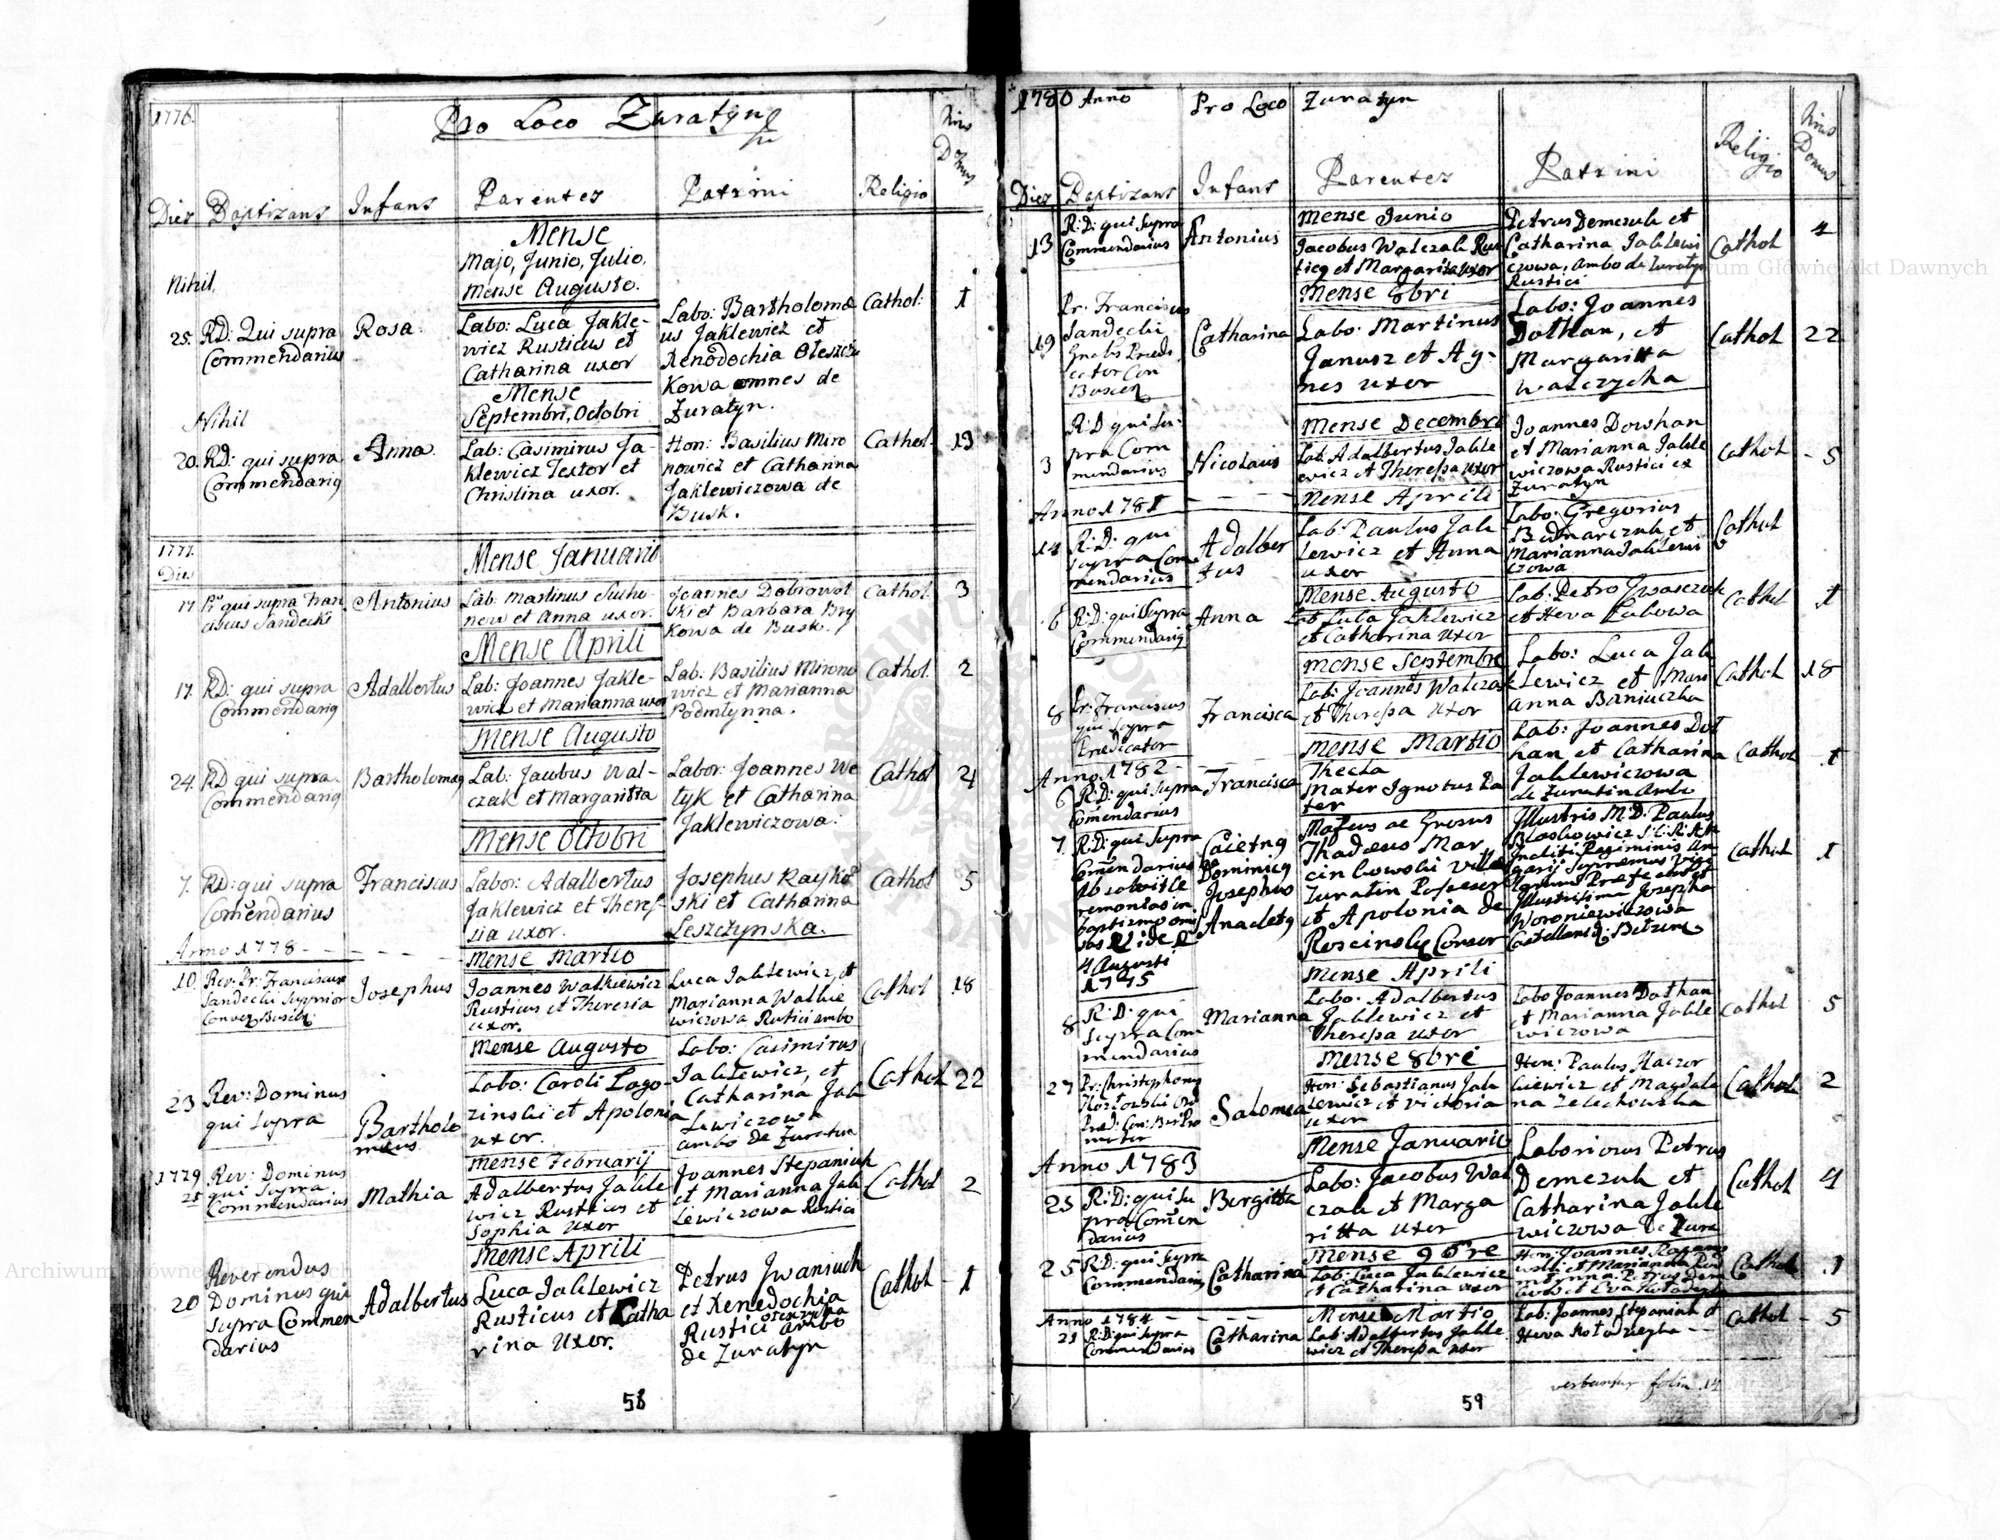 1776.
Pro Loco Zuratyn
Nrus Domus
Dies Baptizans Infans Parentes Patrini Religio
Mense
Majo, Junio, Julio,
Nihil.
Mense Augusto.
25. RD: Qui supra
Commendarius
Rosa.
Labo: Luca Jakle-
wicz Rusticus et
Catharina uxor
Labo: Bartholomæ
us Jaklewicz et
Xenodochia Oleszcz
kowa omnes de
Zuratyn.
Cathol:
1
Mense
Septembri, Octobri
Nihil
20. RD: qui supra
Commendariq
Anna.
Lab: Casimirus Ja-
klewicz Textor et
Christina uxor.
Hon: Basilius Miro
nowicz et Catharina
Jaklewiczowa de
Busk.
Cathol.
13
1777.
Dies
Mense Januario
17 Pr qui supra Fran
ciscus Sandecki
Antonius
Lab: Martinus Sucho-
now et Anna uxor.
Joannes Dobrowol
ski et Barbara Bry
kowa de Busk.
Cathol.
3
Mense Aprili
17. RD: qui supra
Commendariq
Adalbertus
Lab: Joannes Jakle-
wicz et Marianna uxor
Lab: Basilius Mirono
wicz et Marianna
Podmlynna.
Cathol.
2
Mense Augusto
24. RD qui supra
Commendariq
Bartholomeq
Lab: Jacobus Wal-
czak et Margaritta
Labor: Joannes Wo
tyk et Catharina
Jaklewiczowa.
Cathol
4
Mense Octobri
7. RD: qui supra
Comendarius
Franciscus
Labor: Adalbertus
Jaklewicz et Theres-
sia uxor.
Josephus Rayko
ski et Catharina
Leszczynska.
Cathol
5
Anno 1778 - - - - -
Mense Martio
10. Rev: Pr: Franciscus
Sandecki Suprior
Josephus
Joannes Walkiewicz
Rusticus et Theresia
uxor.
Luca Jaklewicz, et
Marianna Walkie
wiczowa Rustici ambo
Cathol
18
Mense Augusto
23 Rev: Dominus
qui supra
Bartholo
meus
Labo: Caroli Lago-
zinski et Apolonia
uxor.
Labo: Casimirus
Jaklewicz, et
Catharina Jak
lewiczowa
ambo de Zuratyn
Cathol
22
Mense Februarij
1779
25
Rev: Dominus
qui supra
Commendarius
Mathia
Adalbertus Jakle
wicz Rusticus et
Sophia uxor
Joannes Stepaniuk
et Marianna Jak
lewiczowa Rustici
Cathol
2
Mense Aprili
20 Reverendus
Dominus qui
supra Commen
darius
Adalbertus
Luca Jaklewicz
Rusticus et Catha
rina Uxor.
Petrus Iwaniuck
et Xenedochia
Rustici ambo
de Zuratyn
Cathol -
1
58
1780 Anno Pro Loco Zuratyn
Dies Baptizans Infans Parentes Patrini Religio Nrus Domus
Mense Junio
13 R:D: qui supra
Commendarius
Antonius
Jacobus Walczak Rus
ticq et Margarita uxor
Petrus Demczuk et
Catharina Jaklewi
czowa, Ambo de Zuratyn
Rustici
Cathol
4
Mense 8bri
19 Pr. Franciscus
Sandecki
Catharina
Labo: Martinus
Janusz et Ag-
nes uxor
Labo: Joannes
Dothan, et
Margaritta
Walczycha
Cathol
22
Mense Decembri
3 R:D qui su-
pra Com
mendarius
Nicolaus
Lab: Adalbertus Jakle
wicz et Theressa uxor
Joannes Dowhan
et Marianna Jakle
wiczowa Rustici ex
Zuratyn
Cathol
- 5
Anno 1781 - - - -
Mense Aprili
14 R:D: qui
supra Com
mendarius
Adalber
tus
Lab: Paulus Jak
lewicz et Anna
uxor
Labo: Gregorius
Bednarczuk et
Marianna Jaklewi
czowa
Cathol
Mense Augusto
6 R:D: qui supra
Commendariq
Anna
Lab Luca Jaklewicz
et Catharina uxor
Lab: Petro Iwasczuk
et Heva Labowa
Cathol
1
Mense Septembre
8 Pr: Franciscus
qui supra
Predicator
Francisca
Lab: Joannes Walczak
et Theressa uxor
Labo: Luca Jak
lewicz et Mari
anna Baniuczka
Cathol
18
Mense Martio
Anno 1782 - - - -
6 R:D: qui supra
Comendarius
Francisca
Thecla
Mater Ignotus Pa
ter
Lab: Joannes Dot
han et Catharina
Jaklewiczowa
de Zuratin Ambo
Cathol
1
7. R:D: qui supra
Comendarius
4 Augusti
1795
Caietnq
Dominicq
Josephus
Anacletq
Mafcus ac Grosus
Thadæus Mar
cinkowski Villæ
Zuratin Possesser
et Apolonia de
Roscinskq Consor
Illustris M: D: Paulus
Illustrissima Josepha
Woroniewiczowa
Cathol
1
Mense Aprili
8 R:D: qui
supra Com
mendarius
Marianna
Labo: Adalbertus
Jaklewicz et
Theressa uxor
Labo Joannes Dothan
et Marianna Jakle
wiczowa
Cathol
5
Mense 8bri
27 Pr: Christophorus
Salomea
Hon: Sebastianus Jak
lewicz et Victoria
uxor
Hon: Paulus Kaczor
kiewicz et Magdale
na Zelechowska
Cathol
2
Mense Januario
Anno 1783
25 R:D: qui su
pra Comen
darius
Birgitta
Labo: Jacobus Wal
czak et Marga
ritta uxor
Laboriorus Petrus
Demczuk et
Catharina Jakle
wiczowa de Zura
Cathol
4
Mense 9bre
25 R:D: qui supra
Commendariq
Catharina
Lab: Luca Jaklewicz
et Catharina uxor
Cathol
1
Anno 1784 - - - -
Mense Martio
21 R:D: qui supra
Commendarius
Catharina
Lab Adalbertus Jakle
wicz et Theressa uxor
Lab: Joannes Stepaniuk et
Heva Kołodzieyka - -
Cathol
- 5
vertantur folia 14
59
Archiwum Główne Akt Dawnych